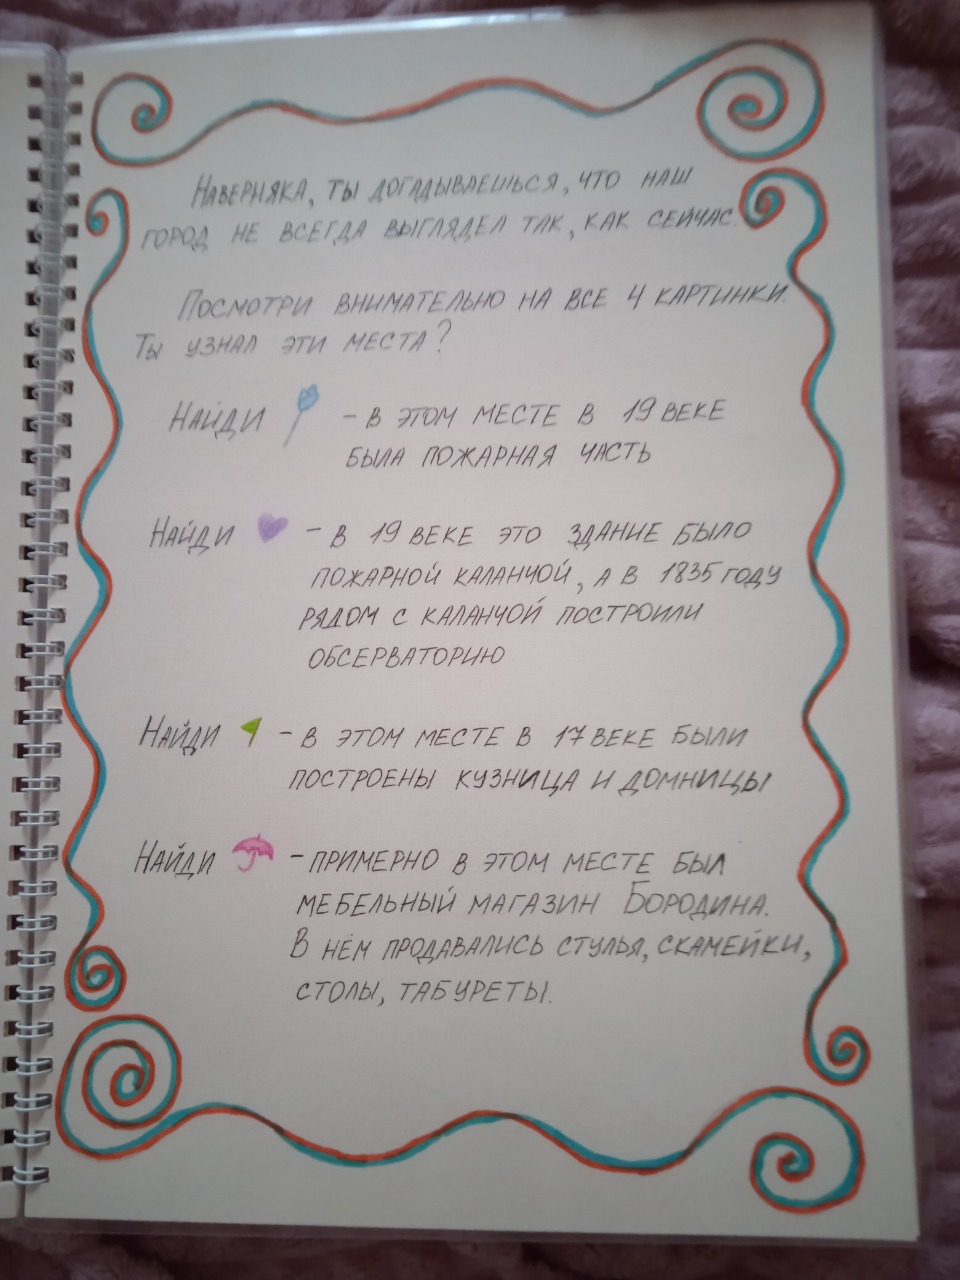 Наверняка, ты догадываешься, что наш
город не всегда выглядел так, как сейчас.
Посмотри внимательно на все 4 картинки.
Ты узнал эти места?
Найди – в этом месте в 19 веке
была пожарная часть
Найди – в 19 веке это здание было
пожарной каланчой, а в 1835 году
рядом с каланчой построили
обсерваторию
Найди – в этом месте в 17 веке были
построены кузница и домницы
Найди – примерно в этом месте был
мебельный магазин Бородина.
В нём продавались стулья, скамейки,
столы, табуреты.